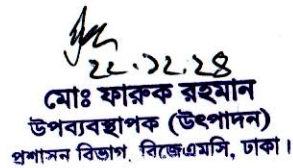 ২২.১২.২৪
মোঃ ফারুক রহমান
উপব্যবস্থাপক (উৎপাদন)
প্রশাসন বিভাগ, বিজেএমসি, ঢাকা।